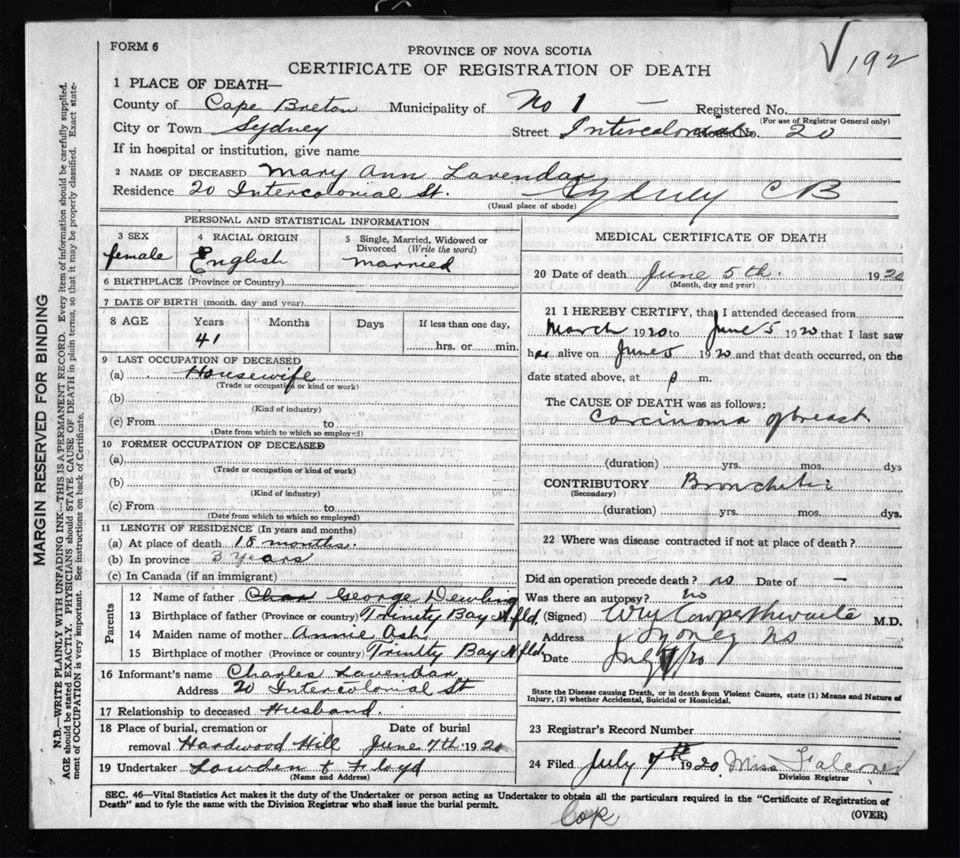 FORM 6
PROVINCE OF NOVA SCOTIA
CERTIFICATE OF REGISTRATION OF DEATH
√192
1 PLACE OF DEATH—
County of Cape Breton Municipality of No 1 — Registered No.
(For use of Registrar General only)
City or Town Sydney Street Intercolonial No. 20
If in hospital or institution, give name
2 NAME OF DECEASED Mary Ann Lavendar
Residence 20 Intercolonial St. Sydney CB
(Usual place of abode)
PERSONAL AND STATISTICAL INFORMATION
3 SEX female
4 RACIAL ORIGIN English
5 Single, Married, Widowed or Divorced (Write the word) married
6 BIRTHPLACE (Province or Country)
7 DATE OF BIRTH (month, day and year)
8 AGE Years Months Days If less than one day,
41 hrs. or min.
9 LAST OCCUPATION OF DECEASED
(a) Housewife
(Trade or occupation or kind or work)
(b)
(Kind of industry)
(c) From to
(Date from which to which so employed)
10 FORMER OCCUPATION OF DECEASED
(a)
(Trade or occupation or kind of work)
(b)
(Kind of industry)
(c) From to
(Date from which to which so employed)
11 LENGTH OF RESIDENCE (In years and months)
(a) At place of death 18 months.
(b) In province 3 years
(c) In Canada (if an immigrant)
Parents
12 Name of father Chas George Dewling
13 Birthplace of father (Province or country) Trinity Bay Nfld.
14 Maiden name of mother Annie Ash
15 Birthplace of mother (Province or country) Trinity Bay Nfld
16 Informant's name Charles Lavendar
Address 20 Intercolonial St
17 Relationship to deceased Husband.
18 Place of burial, cremation or Date of burial
removal Hardwood Hill June 7th 1920
19 Undertaker Lowden & Floyd
(Name and Address)
MEDICAL CERTIFICATE OF DEATH
20 Date of death June 5th. 1920
(Month, day and year)
21 I HEREBY CERTIFY, that I attended deceased from
March 1920 to June 5 1920 that I last saw
her alive on June 5 1920 and that death occurred, on the
date stated above, at p m.
The CAUSE OF DEATH was as follows:
Carcinoma of breast
(duration) yrs. mos. dys
CONTRIBUTORY Bronchitis
(Secondary)
(duration) yrs. mos. dys.
22 Where was disease contracted if not at place of death?
Did an operation precede death? no Date of —
Was there an autopsy? no
(Signed) Wm Cowperthwaite M.D.
Address Sydney NS
Date July /20
State the Disease causing Death, or in death from Violent Causes, state (1) Means and Nature of
Injury, (2) whether Accidental, Suicidal or Homicidal.
23 Registrar's Record Number
24 Filed July 7th 1920. Miss
Division Registrar
SEC. 46—Vital Statistics Act makes it the duty of the Undertaker or person acting as Undertaker to obtain all the particulars required in the "Certificate of Registration of
Death" and to fyle the same with the Division Registrar who shall issue the burial permit.
(OVER)
MARGIN RESERVED FOR BINDING
N.B.—WRITE PLAINLY WITH UNFADING INK—THIS IS A PERMANENT RECORD. Every item of information should be carefully supplied.
AGE should be stated EXACTLY. PHYSICIANS should STATE CAUSE OF DEATH in plain terms, so that it may be properly classified. Exact state-
ment of OCCUPATION is very important. See instructions on back of Certificate.